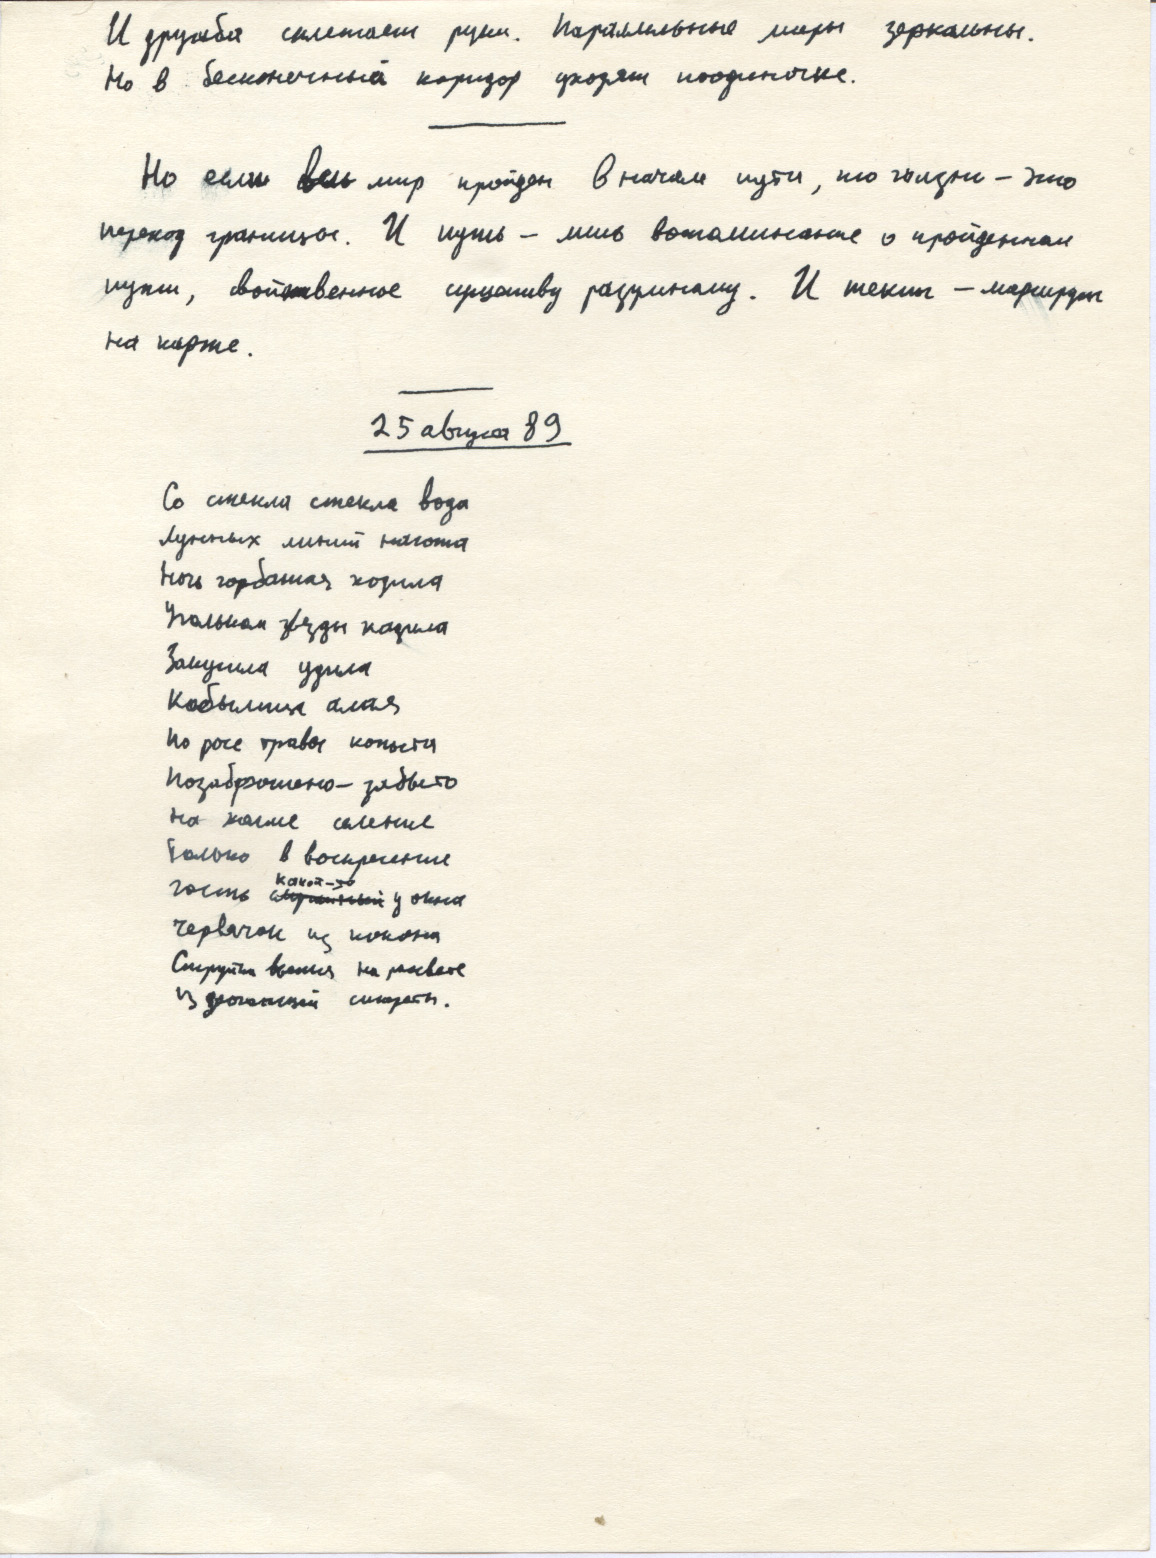 И дружба сплетает руки. Параллельные миры зеркальны.
Но в бесконечный коридор уходят поодиночке.
Но если весь мир пройден в начале пути, то жизнь – это
переход границы. И путь – лишь воспоминание о пройденном
пути, свойственное существу разумному. И тексты – маршруты
на карте.
25 августа 89
Со стекла стекла вода
Лунных линий нагота
Ночь горбатая ходила
Угольком звезды кадила
Закусила удила
Кобылица алая
По росе трава копыта
Позаброшено – забыто
на холме селение
Только в воскресение
гость какой-то у окна
червячок из кокона
Струйка вьется на рассвете
из сигареты.